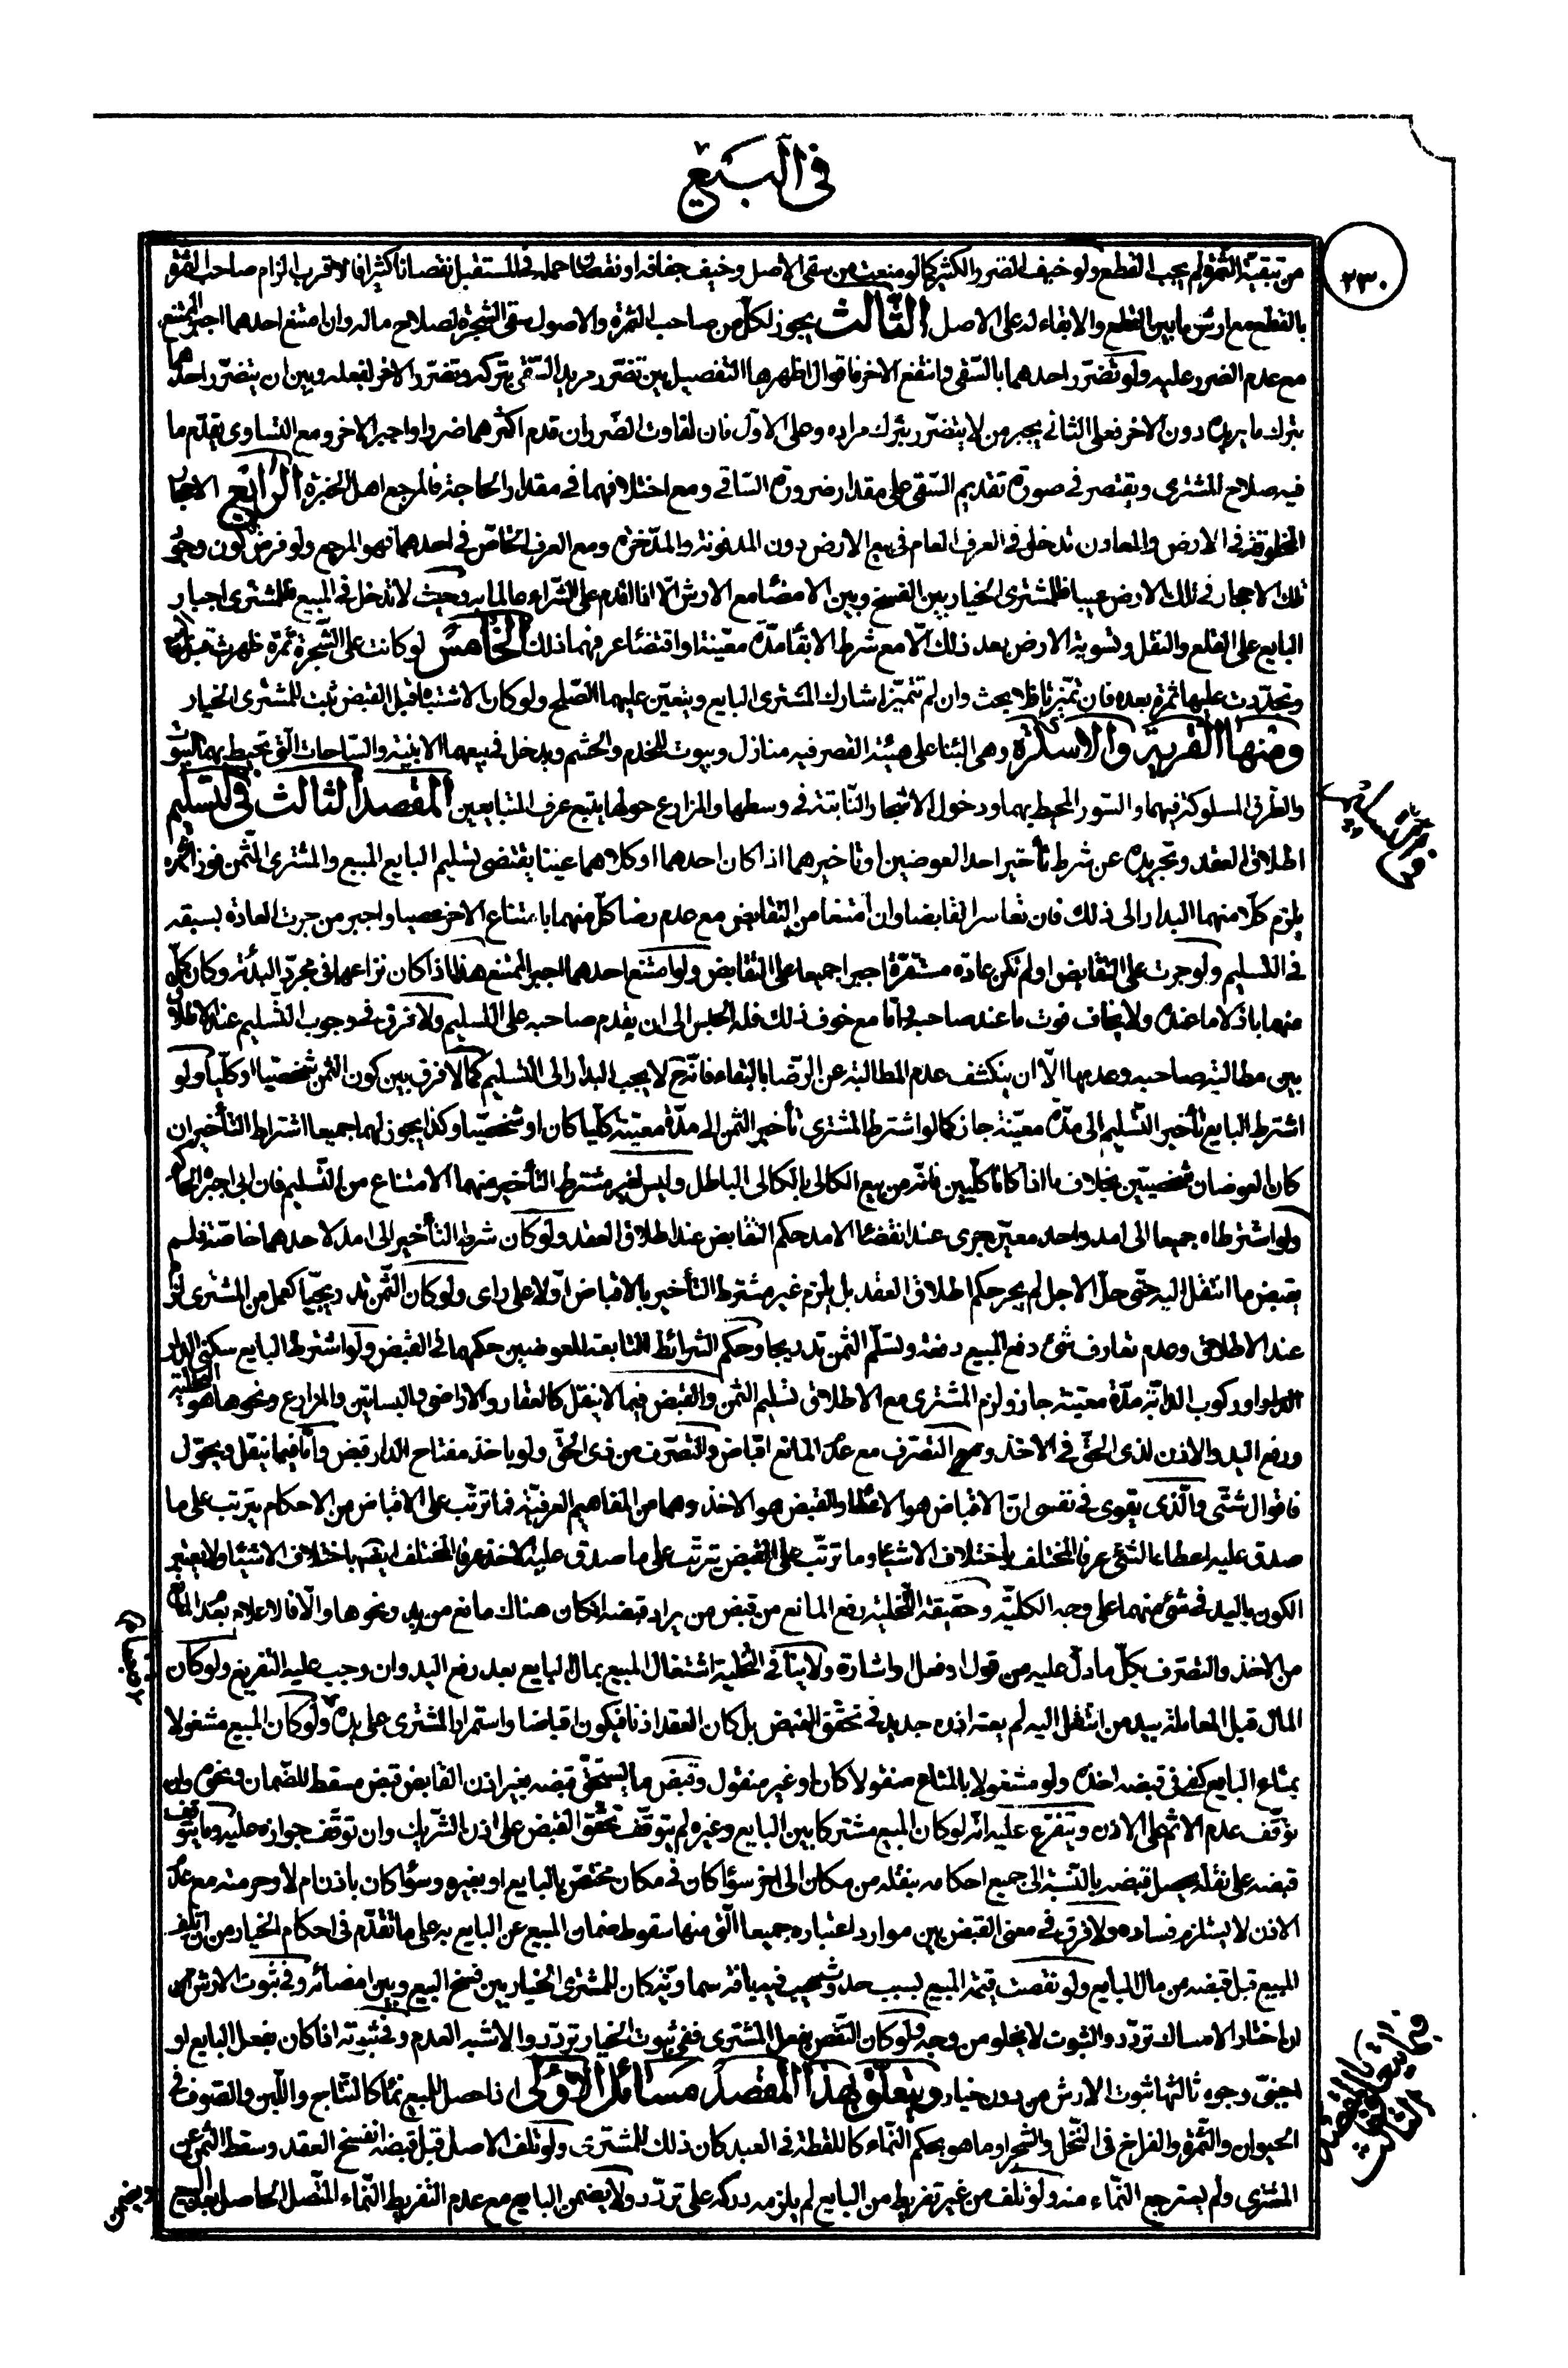 في البيع
٢٣٠
من تبقية الثمرة لم يجب القطع ولو خيف الضرر الكثير كما لو منعت من سقى الاصل وخيف جفافه او نقصان حمله في المستقبل نقصانا كثيرا فالاقرب الزام صاحب الثمرة
بالقطع مع ارش ما بين القطع والابقاء له على الاصل الثالث يجوز لكل من صاحب الثمرة والاصول سقى الشجرة لصلاح ماله وان امتنع احدهما اجبر الممتنع
مع عدم الضرر عليه ولو تضرر احدهما بالسقى وانتفع الاخر فاقوال اظهرها التفصيل بين تضرر مريد السقى بتركه وتضرر الاخر لفعله وبين ان يتضرر احدهما
بترك ما يريده دون الاخر فعلى الثاني يجبر من لا يتضرر بترك مراده وعلى الاول فان تفاوت الضرران قدم اكثرهما ضررا واجبر الاخر ومع التساوى يقدم ما
فيه صلاح المشترى ويقتصر في صورة تقديم السقى على مقدار ضرورة الساقي ومع اختلافهما في مقدار الحاجة فالمرجع اهل الخبرة الرابع الاحجار
المخلوقة في الارض والمعادن تدخل في العرف العام في بيع الارض دون المدفونة والمدخرة ومع العرف الخاص في احدهما فهو المرجع ولو فرض كون وجود
تلك الاحجار في تلك الارض عيبا فللمشترى الخيار بين الفسخ وبين الامضاء مع الارش الا اذا اقدم على الشراء عالما به وحيث لا تدخل في المبيع فللمشترى اجبار
البايع على القلع والنقل وتسوية الارض بعد ذلك الا مع شرط الابقاء مدة معينة او اقتضاء عرفهما ذلك الخامس لو كانت على الشجرة ثمرة ظهرت قبل البيع
وتجددت عليها ثمرة بعده فان تميزتا فلا بحث وان لم تتميزا شارك المشترى البايع ويتعين عليهما الصلح ولو كان الاشتباه قبل القبض ثبت للمشترى الخيار
ومنها القرية والدسكرة وهى البناء على هيئة القصر فيه منازل وبيوت للخدم والحشم ويدخل في بيعهما الابنية والساحات التي تحيط بها البيوت
والطرق المسلوكة فيهما والسور المحيط بهما ودخول الاشجار النابتة في وسطها والمزارع حولها يتبع عرف المتبايعين المقصد الثالث في التسليم
اطلاق العقد وتجريده عن شرط تأخير احد العوضين او تاخيرهما اذا كان احدهما او كلاهما عينا يقتضى تسليم البايع المبيع والمشترى الثمن فورا
يلزم كلا منهما البدار الى ذلك فان تعاسرا تقابضا وان امتنعا من التقابض مع عدم رضا كل منهما بامتناع الاخر عصيا واجبر من جرت العادة بسبقه
في التسليم ولو جرت على التقابض او لم تكن عادة مستقرة اجبرا جميعا على التقابض ولو امتنع احدهما اجبر الممتنع هذا اذا كان نزاعهما في مجرد البدئة وكان كل
منهما باذلا ما عنده ولا يخاف فوت ما عند صاحبه واما مع خوف ذلك فله الحبس الى ان يقدم صاحبه على التسليم ولا فرق في وجوب التسليم عند الاطلاق
بين مطالبة صاحبه وعدمها الا ان ينكشف عدم المطالبة عن الرضا بالبقاء فانه ح لا يجب البدار الى التسليم كما لا فرق بين كون الثمن شخصيا او كليا ولو
اشترط البايع تأخير التسليم الى مدة معينة جاز كما لو اشترط المشترى تأخير الثمن الى مدة معينة كليا كان او شخصيا وكذا يجوز لهما جميعا اشتراط التأخير ان
كان العوضان شخصيين بخلاف ما اذا كانا كليين فانه من بيع الكالى بالكالى الباطل وليس لغير مشترط التأخير منهما الامتناع من التسليم فان ابى اجبره الحاكم
ولو اشترطاه جميعا الى امد واحد معين جرى عند انقضاء الامد حكم التقابض عند اطلاق العقد ولو كان شرط التأخير الى امد لاحدهما خاصة فلم
يقبض ما انتقل اليه حتى حل الاجل لم يجر حكم اطلاق العقد بل يلزم غير مشترط التأخير بالاقباض اولا على راى ولو كان الثمن تدريجيا كعمل من المشترى لزم
عند الاطلاق وعدم تعارف شئ دفع المبيع دفعة وتسلم الثمن تدريجا وحكم الشرائط التابعة للعوضين حكمهما في القبض ولو اشترط البايع سكنى الدار
او ركوب الدابة مدة معينة جاز ولزم المشترى مع الاطلاق تسليم الثمن والقبض فيما لا ينقل كالعقار والاراضى والبساتين والمزارع ونحوها هو التخلية
ورفع اليد والاذن لذى الحق في الاخذ ومع التصرف مع عدم المانع اقباض والتصرف من ذى الحق ولو باخذ مفتاح الدار قبض واما فيما ينقل ويحول
فاقوال شتى والذى يقوى في نفسى ان الاقباض هو الاعطاء والقبض هو الاخذ وهما من المفاهيم العرفية فما ترتب على الاقباض من الاحكام يترتب على ما
صدق عليه اعطاء الشئ عرفا المختلف باختلاف الاشياء وما ترتب على القبض يترتب على ما صدق عليه الاخذ عرفا المختلف ايضا باختلاف الاشياء ولا يعتبر
الكون باليد في شئ منهما على وجه الكلية وحقيقة التخلية رفع المانع من قبض من يراد قبضه ان كان هناك مانع من يد ونحوها والا فالاعلام بعدم المانع
من الاخذ والتصرف بكل ما دل عليه من قول او فعل او اشارة ولا ينافي التخلية اشتغال المبيع بمال البايع بعد رفع اليد وان وجب عليه التفريغ ولو كان
المال قبل المعاملة بيد من انتقل اليه لم يعتبر اذن جديد في تحقق القبض بل كان العقد اذنا فيكون اقباضا واستمرار المشترى على يده ولو كان المبيع مشغولا
بمتاع البايع كفى في قبضه اخذه ولو مشغولا بالمتاع منقولا كان او غير منقول وقبض ما يستحق قبضه بغير اذن القابض قبض مسقط للضمان ونحوه وان
توقف عدم الاثم على الاذن ويتفرع عليه انه لو كان المبيع مشتركا بين البايع وغيره لم يتوقف تحقق القبض على اذن الشريك وان توقف جوازه عليه وما يتوقف
قبضه على نقله يحصل قبضه بالنسبة الى جميع احكامه بنقله من مكان الى اخر سواء كان في مكان مختص بالبايع او بغيره وسواء كان باذن ام لا وحرمته مع عدم
الاذن لا يستلزم فساده ولا فرق في معنى القبض بين موارد اعتباره جميعا التى منها سقوط ضمان المبيع عن البايع به على ما تقدم في احكام الخيار من ان تلف
المبيع قبل قبضه من مال البايع ولو نقصت قيمة المبيع بسبب حدوث عيب فيه بافة سماوية كان للمشترى الخيار بين فسخ البيع وبين امضائه وفي ثبوت الارش له
ان اختار الامساك تردد والثبوت لا يخلو من وجه ولو كان النقص بفعل المشترى ففي ثبوت الخيار تردد والاشبه العدم وفي ثبوته اذا كان بفعل البايع او
اجنبى وجوه ثالثها ثبوت الارش من دون خيار ويتعلق بهذا المقصد مسائل الاولى اذا حصل للمبيع نماء كالنتاج واللبن والصوف في
الحيوان والثمرة والفراخ في النخل والشجر او ما هو بحكم النماء كاللقطة في العبد كان ذلك للمشترى ولو تلف الاصل قبل قبضه انفسخ العقد وسقط الثمن عن
المشترى ولم يسترجع النماء منه ولو تلف من غير تفريط من البايع لم يلزمه دركه على تردد ولا يضمن البايع مع عدم التفريط النماء المتصل الحاصل بعد البيع
ويضمن